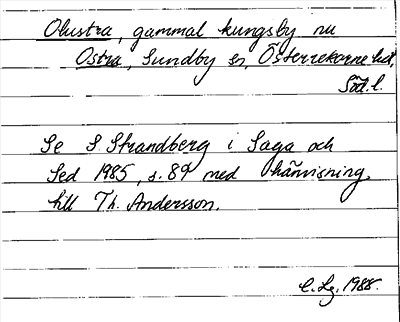 Olustra, gammal kungsby nu
Ostra, Sundby sn, Österrekarne hd,
Söd. l.
Se S. Strandberg i Saga och
Sed 1985, s. 89 med hänvisning
till Th. Andersson.
C. Lg. 1988.